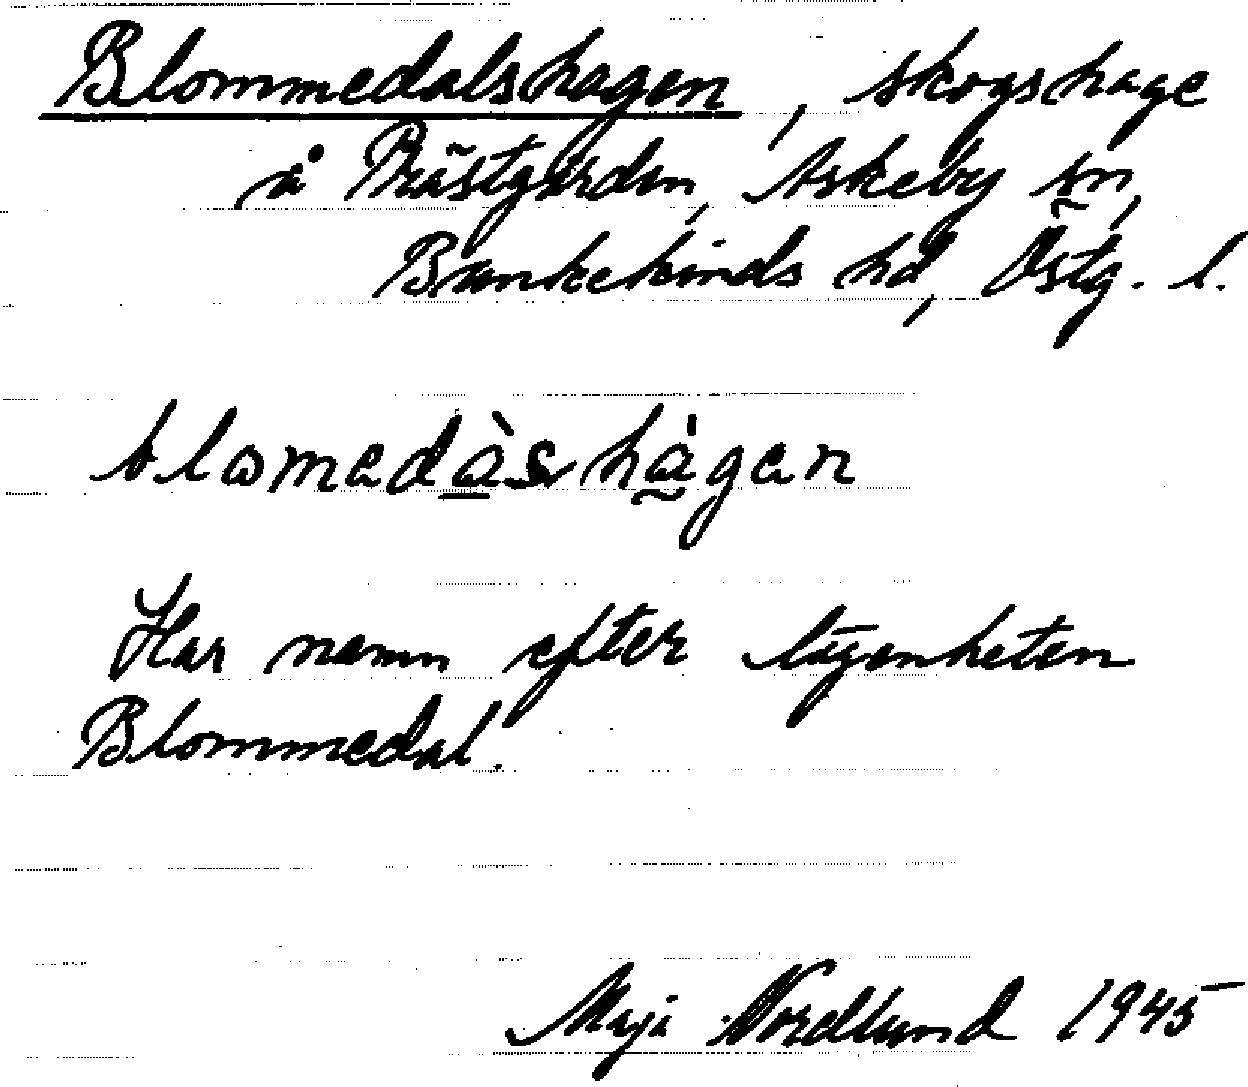 Blommedalshagen, skogshage
å Prästgården, Askeby sn,
Bankekinds hd, Östg. l.
blomedàshàgen
Har namn efter lägenheten
Blommedal.
Maja Nordlund 1945